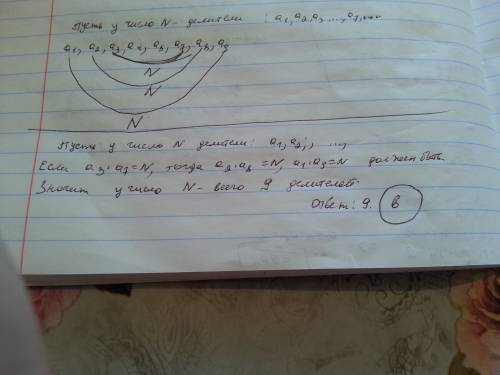 Пусть у число N- делители : a₁, a₂, a₃, ..., a₇, ...
a₁, a₂, a₃, a₄, a₅, a₇, a₈, a₉
N
N
N
Пусть у число N делители: a₁, a₂, ; ...,
Если a₃·a₇=N, тогда a₂·a₈=N, a₁·a₉=N должен быть.
Значит у число N- всего 9 делителей.
Ответ: 9. В